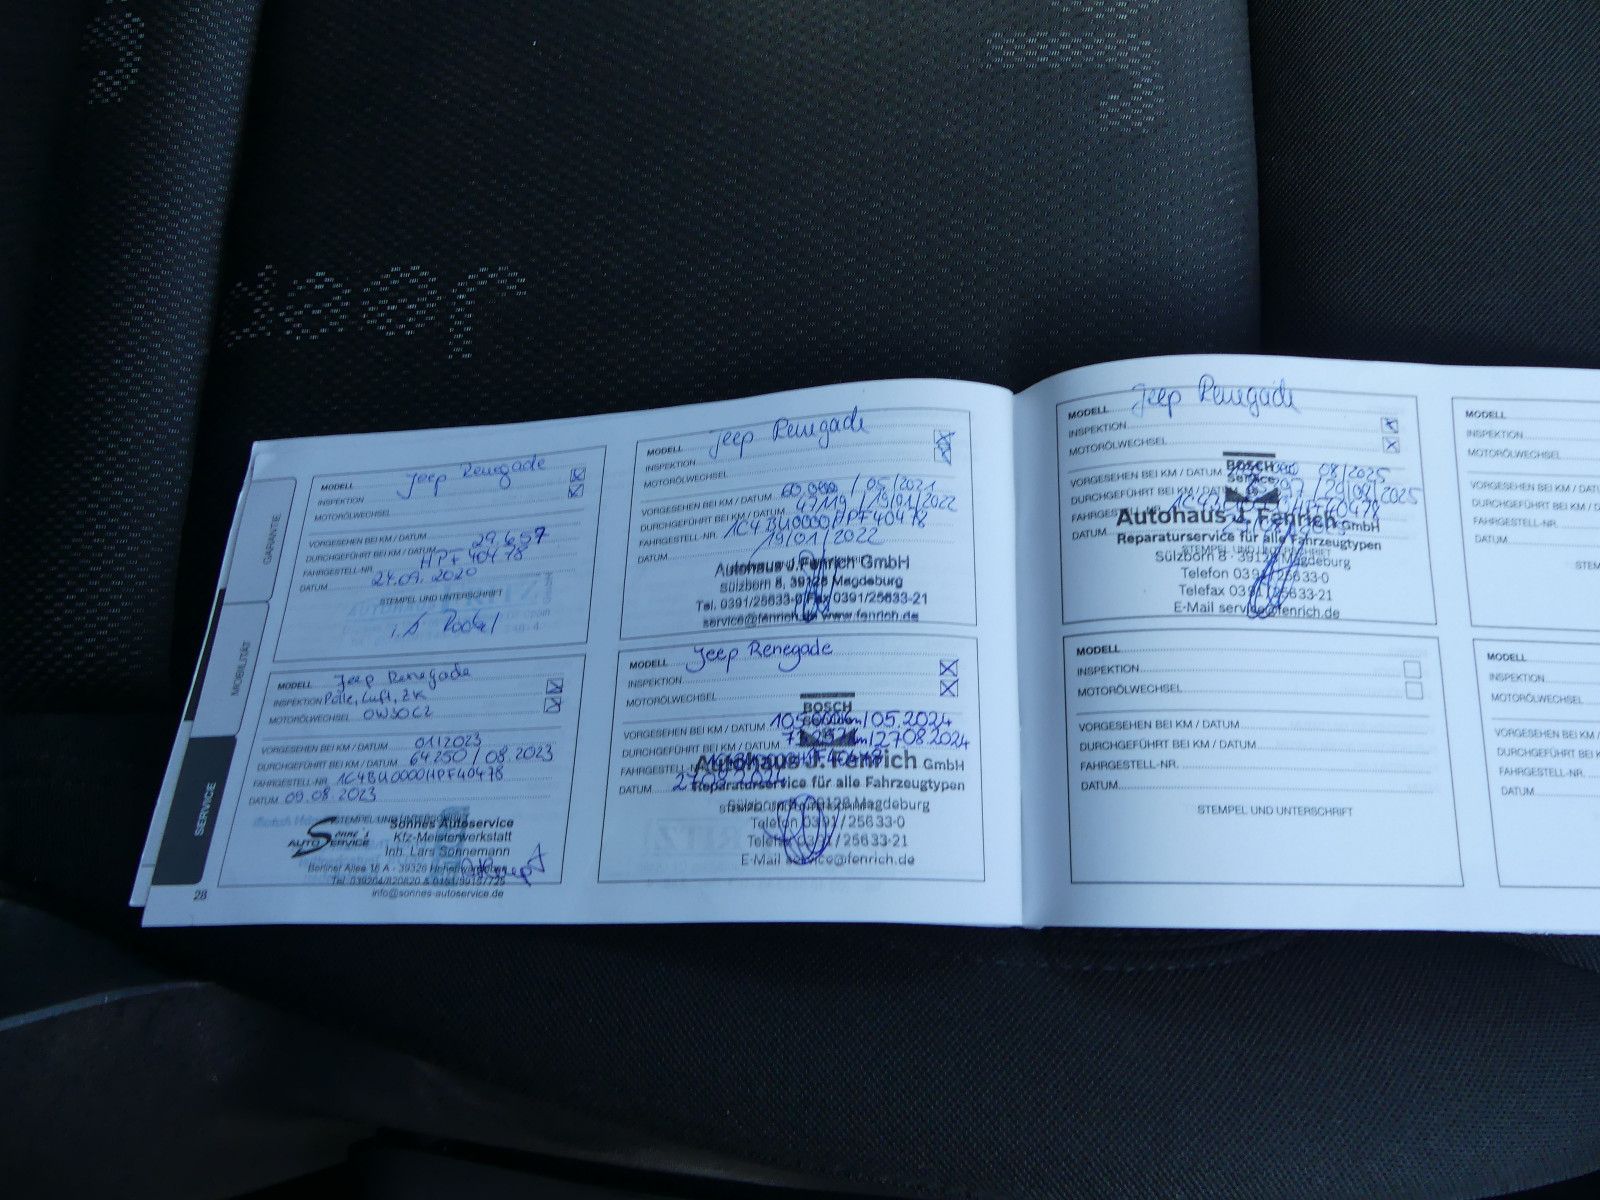 Jeep
GARANTIE
MOBILITÄT
SERVICE
MODELL Jeep Renegade
INSPEKTION
MOTORÖLWECHSEL
VORGESEHEN BEI KM / DATUM
DURCHGEFÜHRT BEI KM / DATUM 29.657
FAHRGESTELL-NR. HPF40478
DATUM 24.09.2020
STEMPEL UND UNTERSCHRIFT
MODELL Jeep Renegade
INSPEKTION Polle, Luft, ZK
MOTORÖLWECHSEL 0W30C2
VORGESEHEN BEI KM / DATUM 01/2023
DURCHGEFÜHRT BEI KM / DATUM 64250 / 08.2023
FAHRGESTELL-NR. 1C4BU0000HPF40478
DATUM 09.08.2023
STEMPEL UND UNTERSCHRIFT
Sonne's
AUTO SERVICE
Sonnes Autoservice
Kfz-Meisterwerkstatt
Inh. Lars Sonnemann
Berliner Allee 16 A - 39326
info@sonnes-autoservice.de
28
MODELL Jeep Renegade
INSPEKTION
MOTORÖLWECHSEL
VORGESEHEN BEI KM / DATUM 60.000 / 05/2021
DURCHGEFÜHRT BEI KM / DATUM 19/01/2022
FAHRGESTELL-NR. 1C4BU0000HPF40478
DATUM 19/01/2022
Autohaus J. Fenrich GmbH
Sülzborn 8, 39128 Magdeburg
Tel. 0391/25633-0 Fax 0391/25633-21
service@fenrich.de www.fenrich.de
MODELL Jeep Renegade
INSPEKTION
MOTORÖLWECHSEL
BOSCH
Service
VORGESEHEN BEI KM / DATUM 105.000km/05.2024
DURCHGEFÜHRT BEI KM / DATUM 27.08.2024
FAHRGESTELL-NR.
Autohaus J. Fenrich GmbH
DATUM
Reparaturservice für alle Fahrzeugtypen
Sülzborn 8 · 39128 Magdeburg
Telefon 0391/25633-0
Telefax 0391/25633-21
E-Mail service@fenrich.de
MODELL Jeep Renegade
INSPEKTION
MOTORÖLWECHSEL
BOSCH
Service
VORGESEHEN BEI KM / DATUM 08/2025
DURCHGEFÜHRT BEI KM / DATUM 29/08/2025
FAHRGESTELL-NR.
Autohaus J. Fenrich GmbH
DATUM
Reparaturservice für alle Fahrzeugtypen
STEMPEL UND UNTERSCHRIFT
Sülzborn 8 · 39128 Magdeburg
Telefon 0391/25633-0
Telefax 0391/25633-21
E-Mail service@fenrich.de
MODELL
INSPEKTION
MOTORÖLWECHSEL
VORGESEHEN BEI KM / DATUM
DURCHGEFÜHRT BEI KM / DATUM
FAHRGESTELL-NR.
DATUM
STEMPEL UND UNTERSCHRIFT
MODELL
INSPEKTION
MOTORÖLWECHSEL
VORGESEHEN BEI KM / DATU
DURCHGEFÜHRT BEI KM /
FAHRGESTELL-NR.
DATUM
STEM
MODELL
INSPEKTION
MOTORÖLWECHSEL
VORGESEHEN BEI KM /
DURCHGEFÜHRT BEI KM
FAHRGESTELL-NR.
DATUM